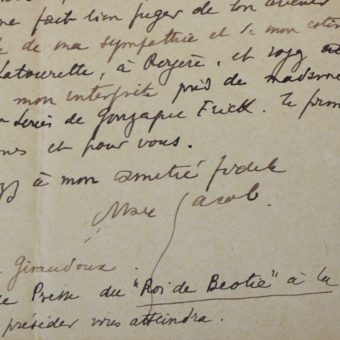 me fait bien juger de ton avenir
de ma sympathie et de mon
Latourette, à Royère, et
mon interprète près de madame
série de Gonzague Frick. Te
et pour vous.
à mon amitié fidèle
Max Jacob.
Giraudoux.
Presse du "Roi de Béotie" à la
présider vous atteindra.